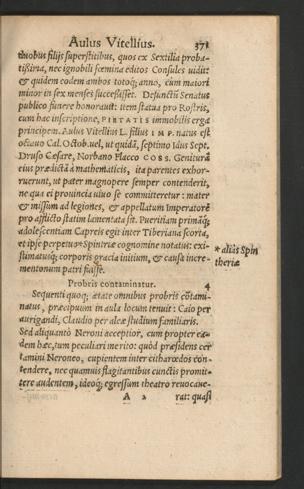 Aulus Vitellius. 371
duobus filijs superstitibus, quos ex Sextilia proba-
tißima, nec ignobili fœmina editos Consules uidit:
& quidem eodem ambos totoq; anno, cum maiori
minor in sex menses successisset. Defunctū Senatus
publico funere honorauit: item statua pro Rostris,
cum hac inscriptione, PIETATIS immobilis erga
principem. Aulus Vitellius L. filius IMP. natus est
octauo Cal. Octob. uel, ut quidā, septimo Idus Sept.
Druso Cæsare, Norbano Flacco COSS. Geniturā
eius prædictā à mathematicis, ita parentes exhor-
ruerunt, ut pater magnopere semper contenderit,
ne qua ei prouincia uiuo se committeretur: mater
& missum ad legiones, & appellatum Imperatorē
pro afflicto statim lamentata sit. Pueritiam primāq;
adolescentiam Capreis egit inter Tiberiana scorta,
et ipse perpetuo *Spintriæ cognomine notatus: exi-
stimatusq; corporis gratia initium, & causa incre-
mentorum patri fuisse.
* aliàs Spin
theriæ
Probris contaminatur. 4
Sequenti quoq; ætate omnibus probris cōtami-
natus, præcipuum in aula locum tenuit: Caio per
aurigandi, Claudio per aleæ studium familiaris.
Sed aliquantò Neroni acceptior, cum propter ea-
dem hæc, tum peculiari merito: quòd præsidens cer
tamini Neroneo, cupientem inter citharœdos con-
tendere, nec quamuis flagitantibus cunctis promit-
tere audentem, ideoq; egressum theatro reuocaue-
A 2 rat: quasi